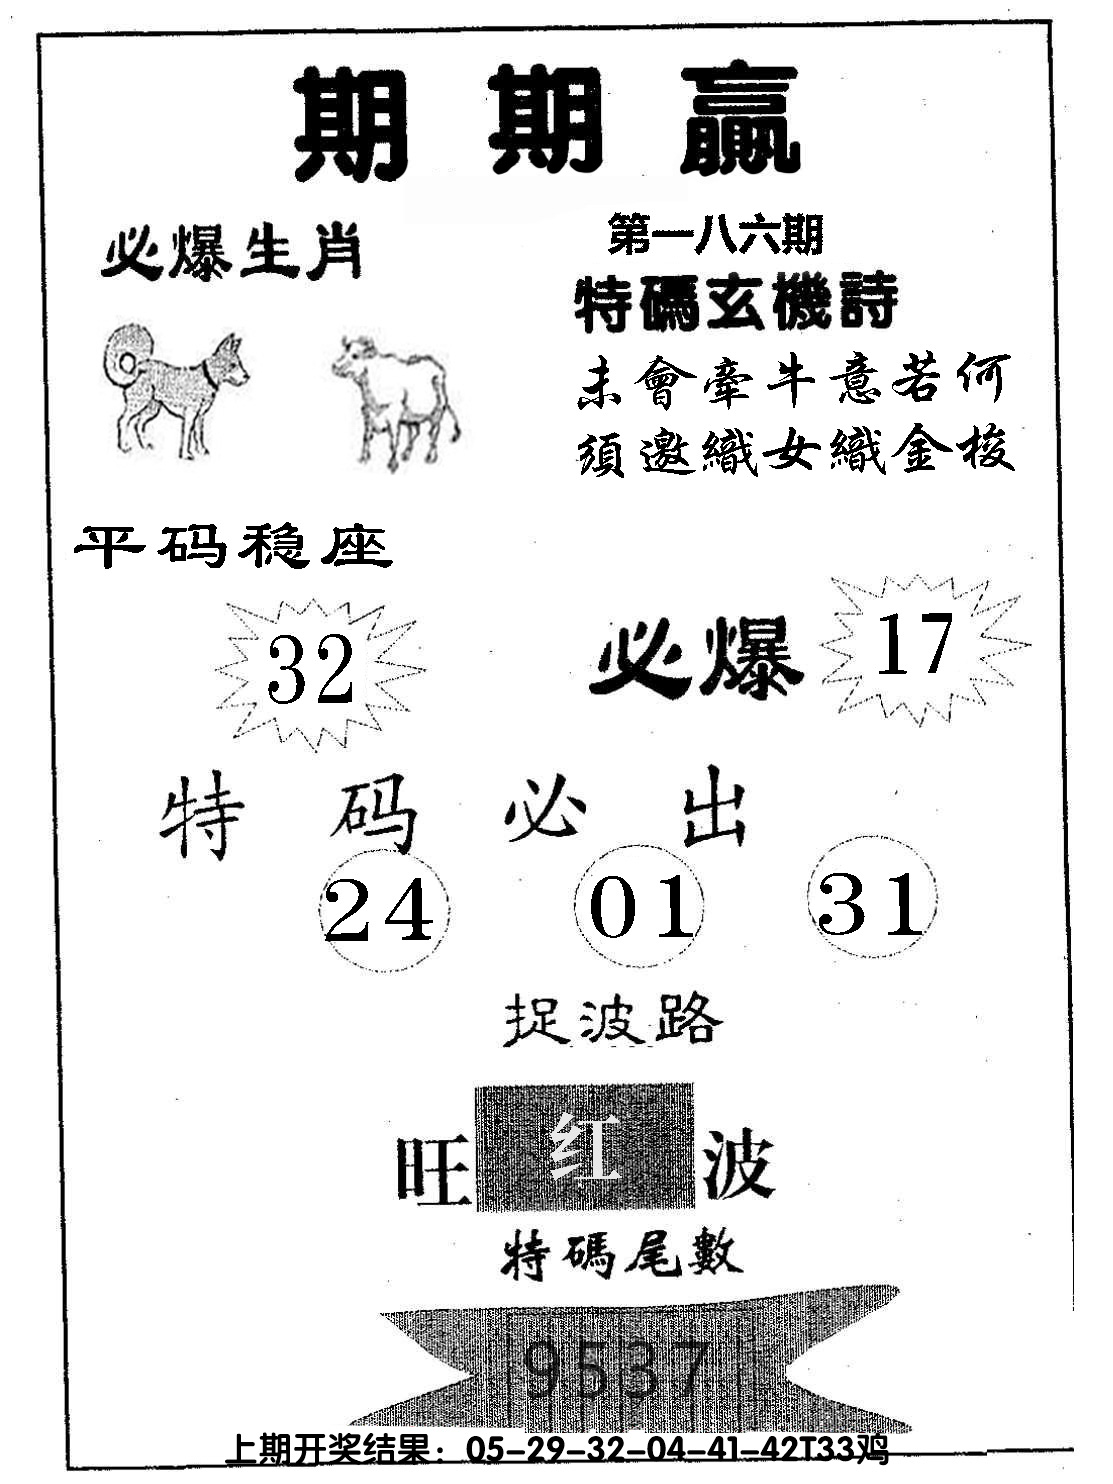 期期赢
必爆生肖
第一八六期
特碼玄機詩
未會牽牛意若何
須邀織女織金梭
平码稳座
32
必爆 17
特码必出
24 01 31
捉波路
旺 红 波
特碼尾數
9537
上期开奖结果：05-29-32-04-41-42T33鸡